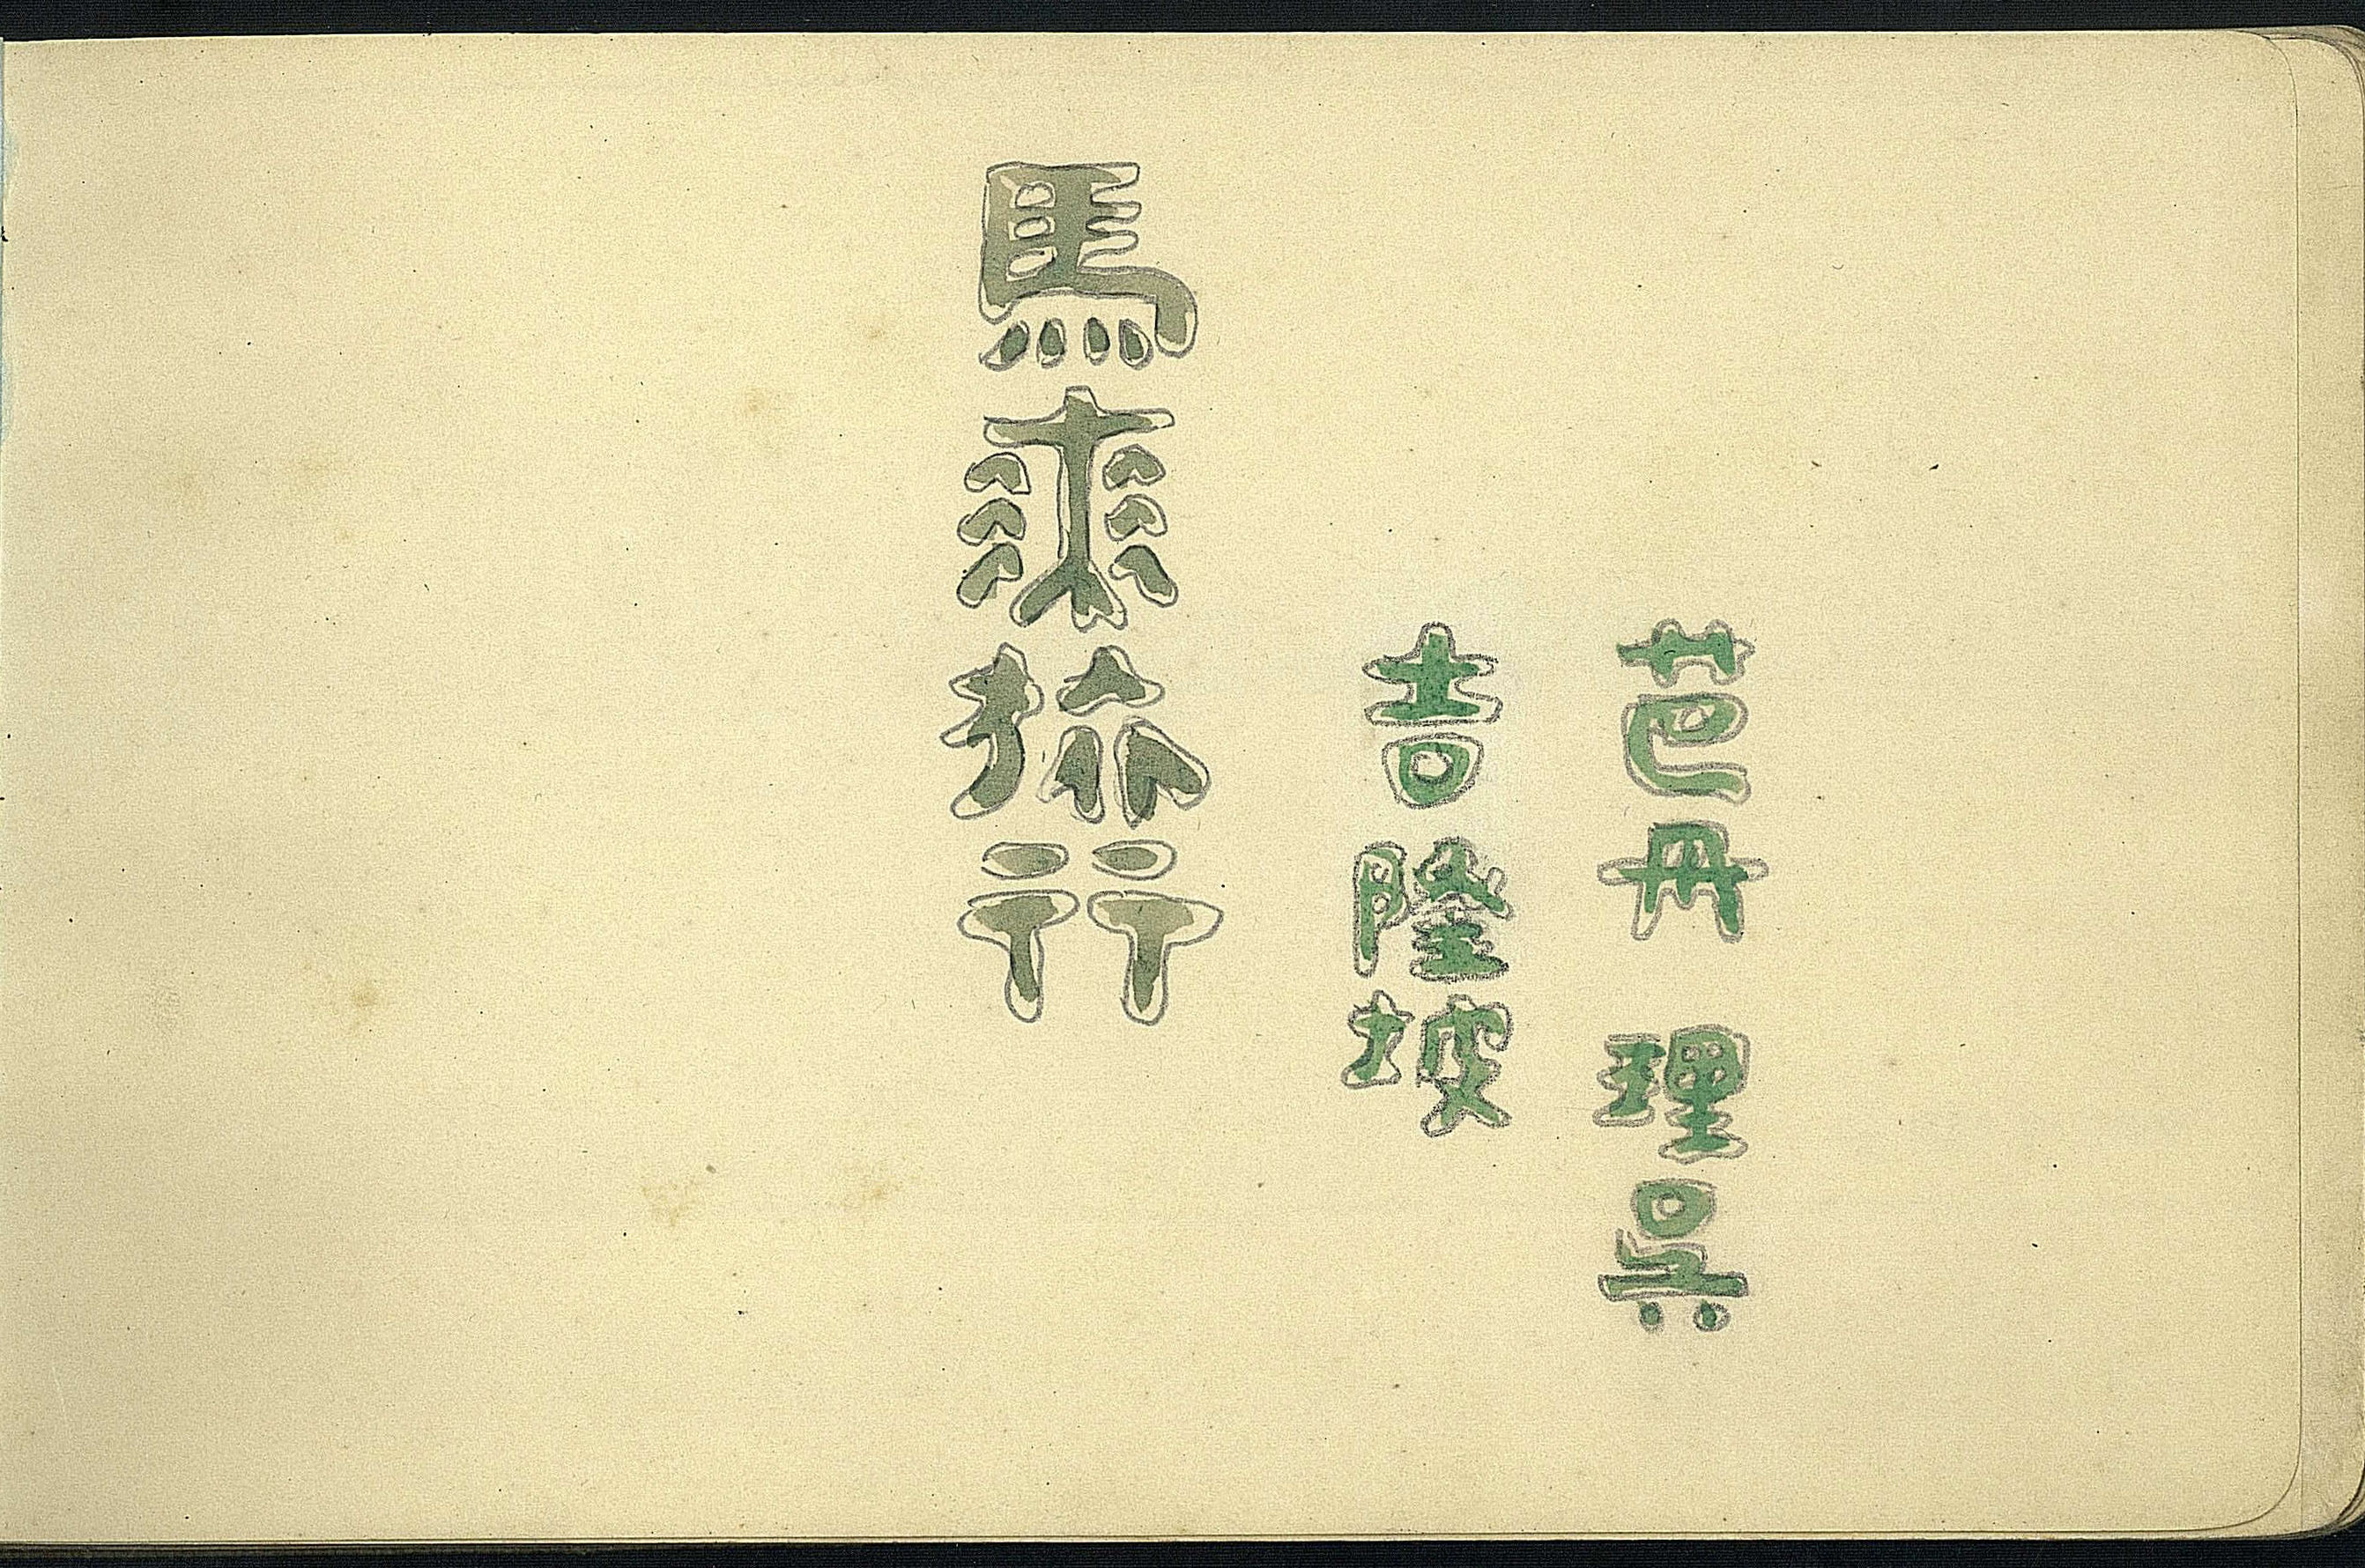 芭丹 理吳
吉隆坡
馬來旅行